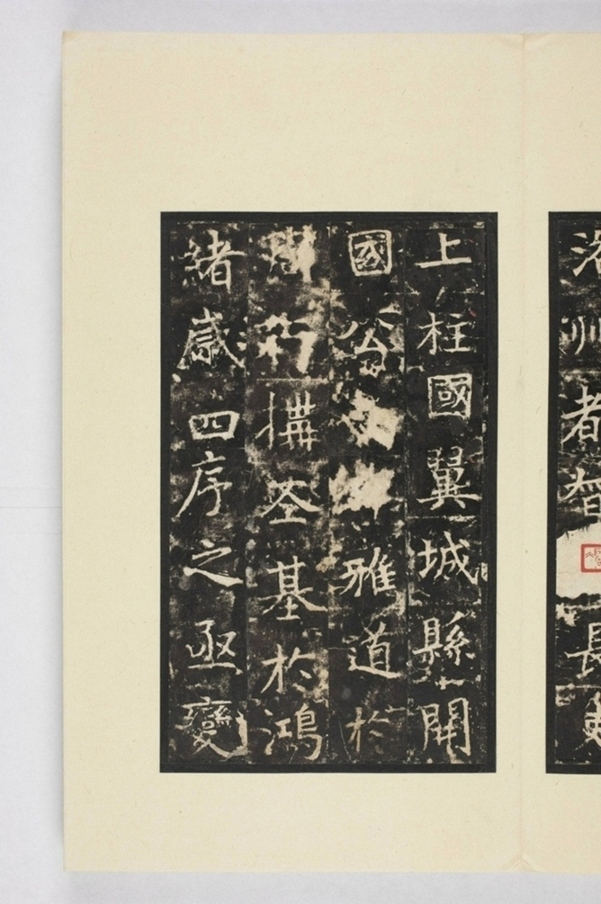 洛州都督長史
上柱國翼城縣開
國公雅道於
構基於鴻
緒感四序之亟變